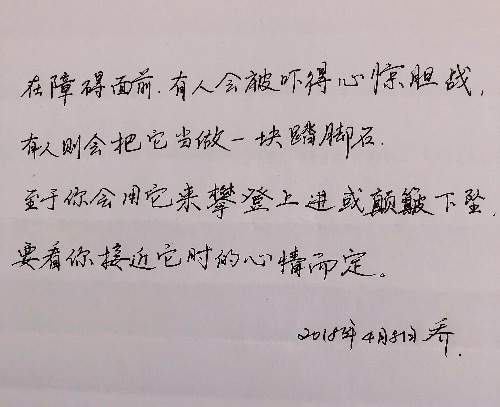 在障碍面前.有人会被吓得心惊胆战,
有人则会把它当做一块踏脚石.
至于你会用它来攀登上进或颠簸下坠,
要看你接近它时的心情而定。
2018年4月 乔.